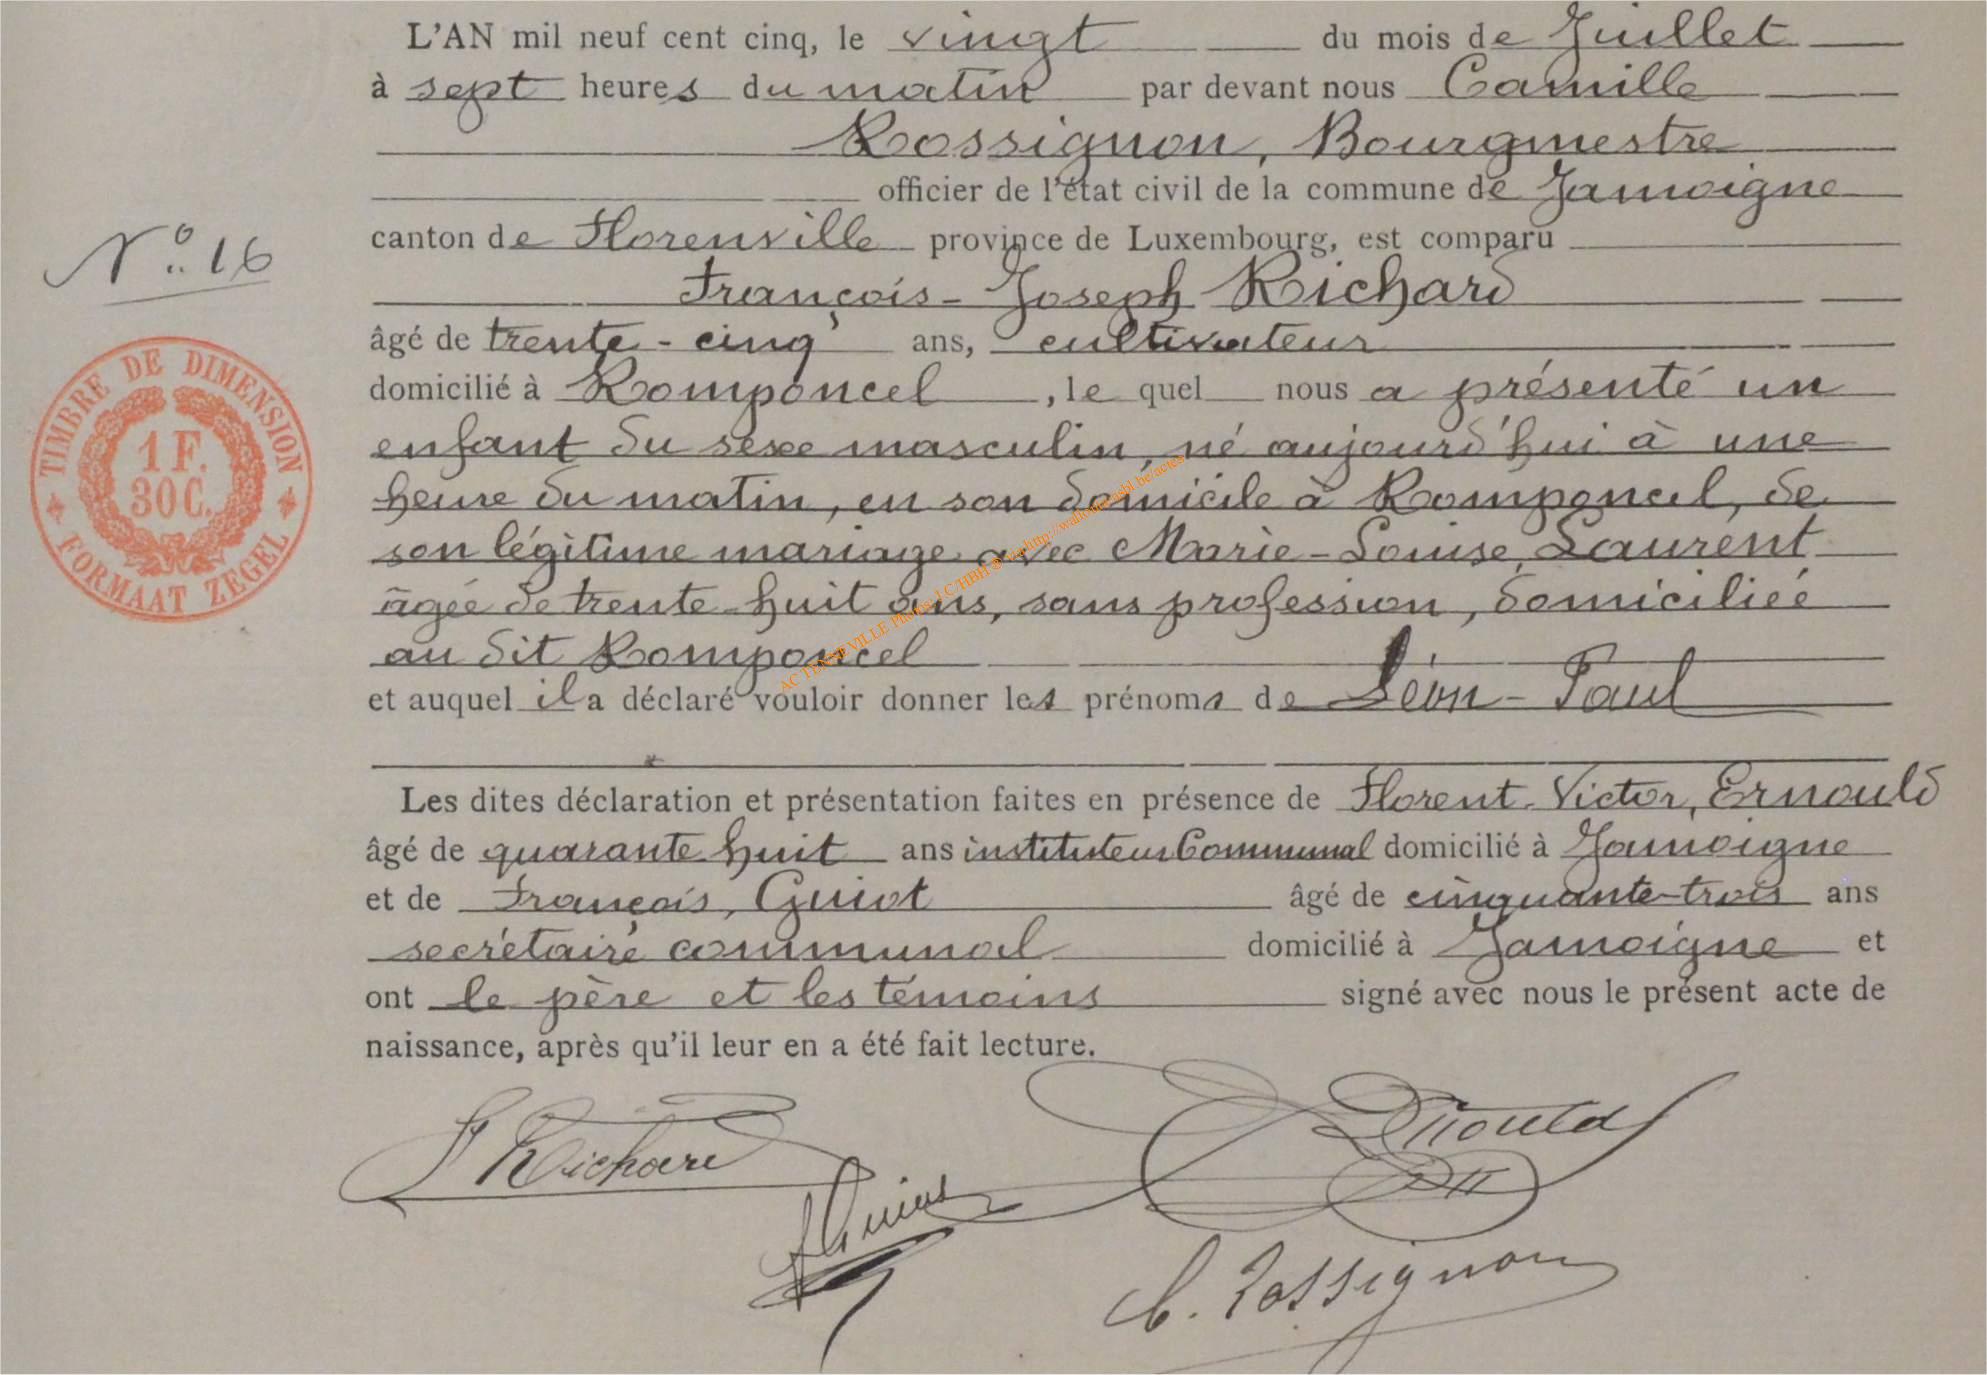 L'AN mil neuf cent cinq, le vingt du mois de Juillet
à sept heures du matin par devant nous Camille
Rossignon, Bourgmestre
officier de l'état civil de la commune de Jamoigne
canton de Florenville province de Luxembourg, est comparu
N° 16
François-Joseph Richard
âgé de trente-cinq ans, cultivateur
domicilié à Romponcel, le quel nous a présenté un
enfant du sexe masculin, né aujourd'hui à une
heure du matin, en son domicile à Romponcel, de
son légitime mariage avec Marie-Louise, Laurent
âgée de trente-huit ans, sans profession, domiciliée
au dit Romponcel
et auquel il a déclaré vouloir donner les prénoms de Léon-Paul
TIMBRE DE DIMENSION
1 F.
30 C.
FORMAAT ZEGEL
Les dites déclaration et présentation faites en présence de Florent-Victor, Ernould
âgé de quarante huit ans instituteur Communal domicilié à Jamoigne
et de François, Guiot âgé de cinquante-trois ans
secrétaire communal domicilié à Jamoigne et
ont le père et les témoins signé avec nous le présent acte de
naissance, après qu'il leur en a été fait lecture.
F Richard
Ernould
F Guiot
C. Rossignon